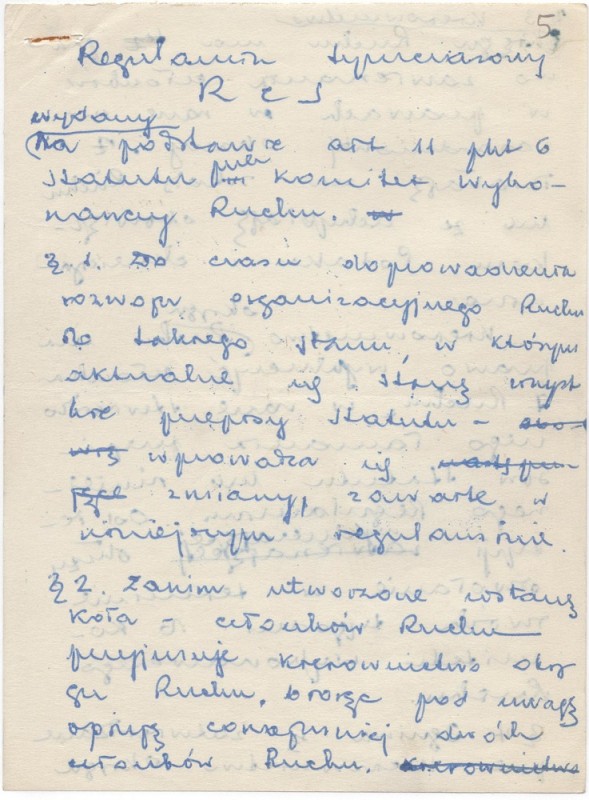 5.
Regulamin tymczasowy
R C S
wydany
Na podstawie art 11 pkt 6
statutu przez Komitet Wyko-
nawczy Ruchu.
§ 1. Do czasu doprowadzenia
rozwoju organizacyjnego Ruchu
do takiego stanu, w którym
aktualne się staną wszyst
kie przepisy statutu –
wprowadza się
zmiany, zawarte w
niniejszym regulaminie.
§ 2. Zanim utworzone zostaną
Koła – członków Ruchu
przyjmuje kierownictwo okrę
gu Ruchu, biorąc pod uwagę
opinię conajmniej dwóch
członków Ruchu. kierownictwo